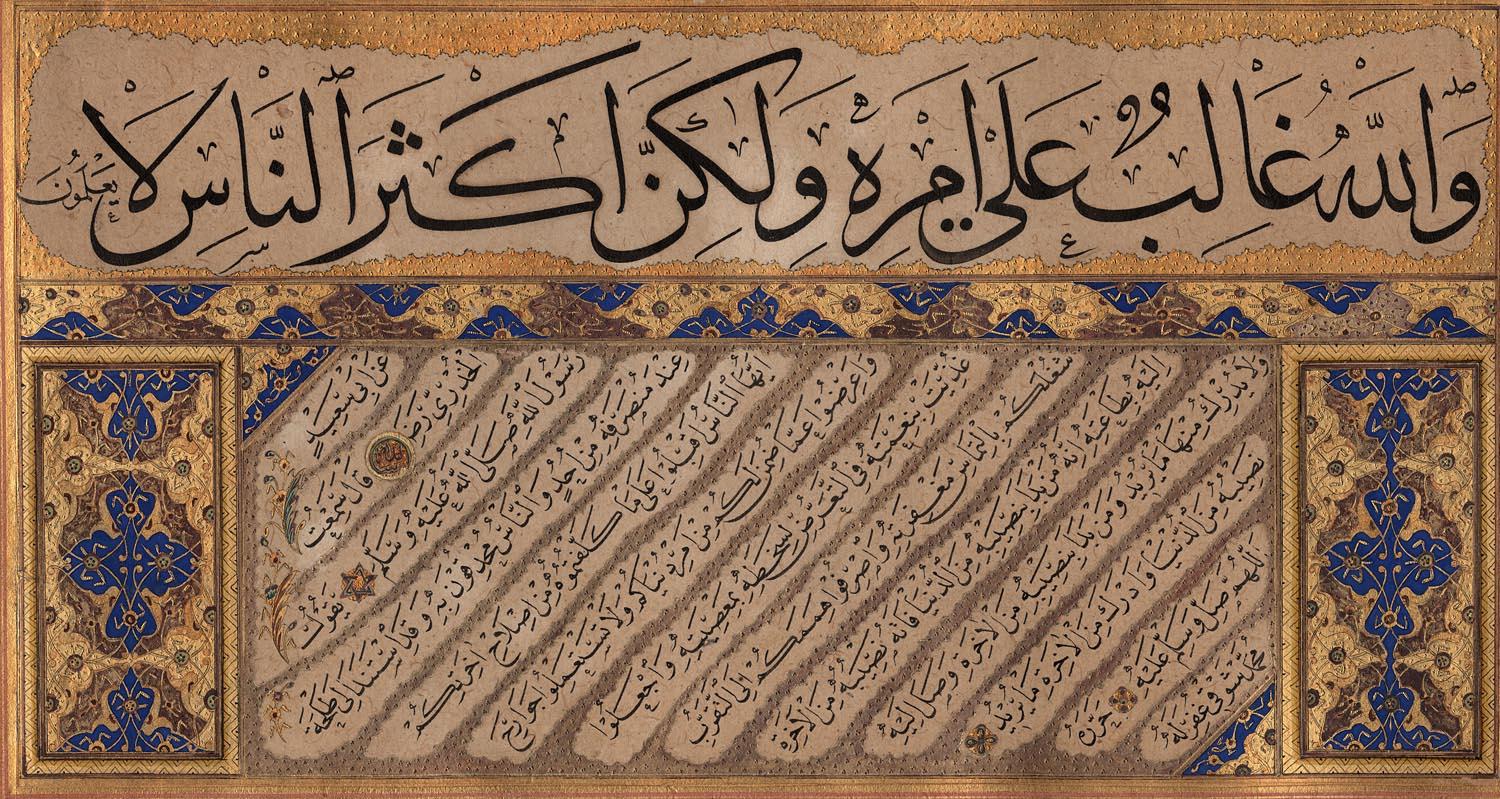 وَاللّٰهُ غَالِبٌ عَلٰى اَمْرِهٖ وَلٰكِنَّ اَكْثَرَ النَّاسِ لَا يَعْلَمُونَ
عن ابي سعيد
الخدري رضي قال سمعت
رسول الله صلى الله عليه وسلم يقول
عند منصرفه من احد والناس محدقون به وقد استند الى طلحة
ايها الناس اقبلوا على ما كلفتموه من اصلاح اخرتكم
واعرضوا عما ضمن لكم من امر دنياكم ولا تستعملوا جوارح
غذيت بنعمته في التعرض لسخطه بمعصيته واجعلوا
شغلكم بالتماس مغفرته واصرفوا هممكم الى التقرب
اليه بطاعته انه من بدا بنصيبه من الدنيا فاته نصيبه من الاخرة
ولا يدرك منها ما يريد ومن بدا بنصيبه من الاخرة وصل اليه
نصيبه من الدنيا وادرك من الاخرة ما يريد
اللهم صل وسلم عليه حرره
محمد شوقي غفر له